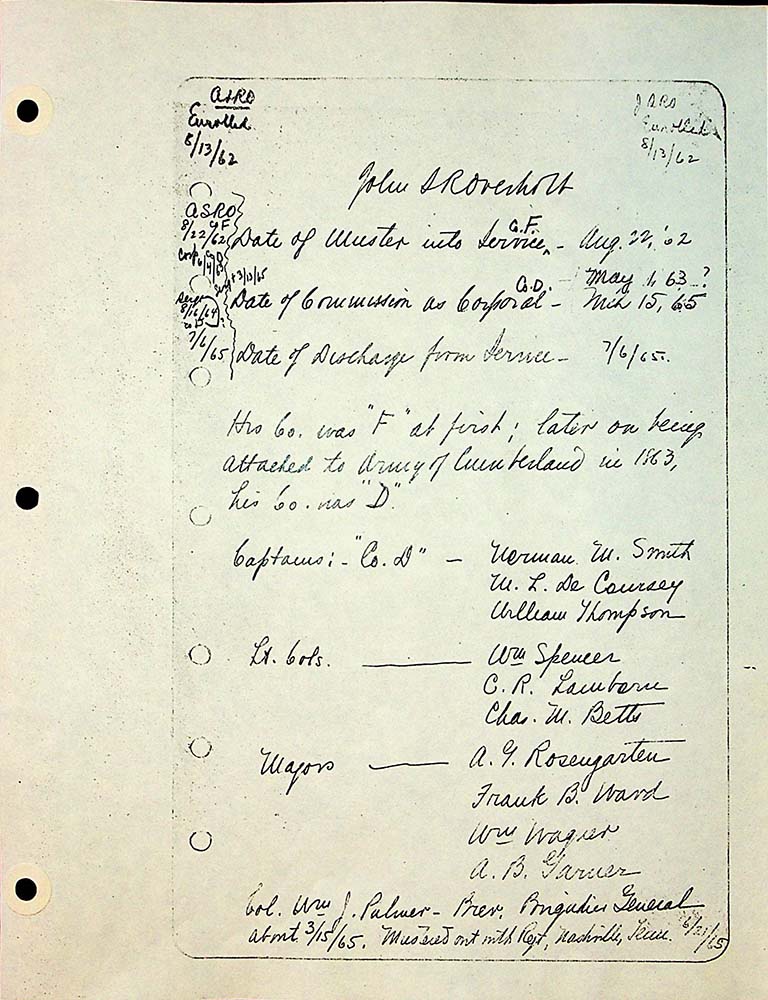 ASRO
Enrolled
8/13/62
JSRO
Enrolled
8/13/62
John S R Overholt
ASRO
8/22/62
C.F.
Date of Muster into Service - Aug. 22, '62
C.D. - May 1, 63 - ?
Date of Commission as Corporal - Mch 15, 65
7/6/65
Date of Discharge from Service - 7/6/65.
His Co. was "F" at first; later on being
attached to Army of Cumberland in 1863,
his Co. was "D".
Captains: - "Co. D" - Norman M. Smith
M. L. De Coursey
William Thompson
Lt. Cols. — Wm Spencer
C. R. Lamborn
Chas. M. Betts
Majors — A. G. Rosengarten
Frank B. Ward
Wm Wagner
A. B. Garner
Col. Wm J. Palmer - Brev. Brigadier General
about 3/15/65. Mustered out with Regt, Nashville, Tenn. 6/21/65